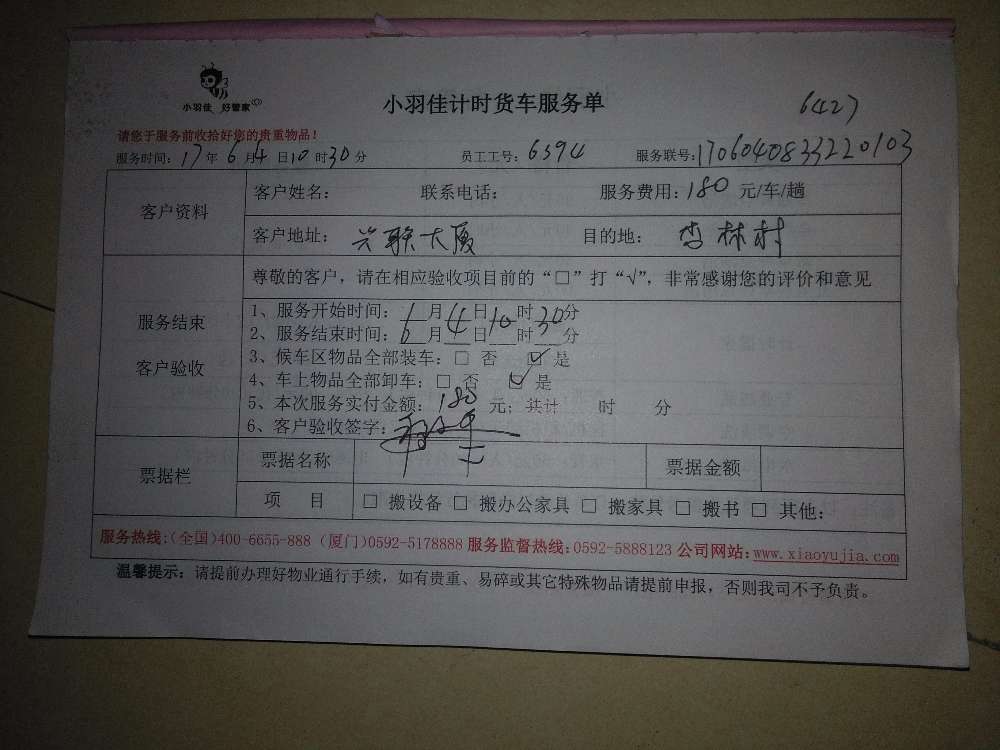 小羽佳 好管家
小羽佳计时货车服务单
6427
请您于服务前收拾好您的贵重物品！
服务时间：17年6月4日10时30分 员工工号：6594 服务联号：1706040833220103
客户资料
客户姓名： 联系电话： 服务费用：180 元/车/趟
客户地址：兴联大厦 目的地：杏林村
服务结束
客户验收
尊敬的客户，请在相应验收项目前的“□”打“√”，非常感谢您的评价和意见
1、服务开始时间： 月4日10时30分
2、服务结束时间：6月 日 时 分
3、候车区物品全部装车：□ 否 ☑ 是
4、车上物品全部卸车：□ 否 ☑ 是
5、本次服务实付金额：180 元；共计 时 分
6、客户验收签字：
票据栏
票据名称 票据金额
项 目 □ 搬设备 □ 搬办公家具 □ 搬家具 □ 搬书 □ 其他：
服务热线：（全国）400-6655-888（厦门）0592-5178888 服务监督热线：0592-5888123 公司网站：www.xiaoyujia.com
温馨提示：请提前办理好物业通行手续，如有贵重、易碎或其它特殊物品请提前申报，否则我司不予负责。